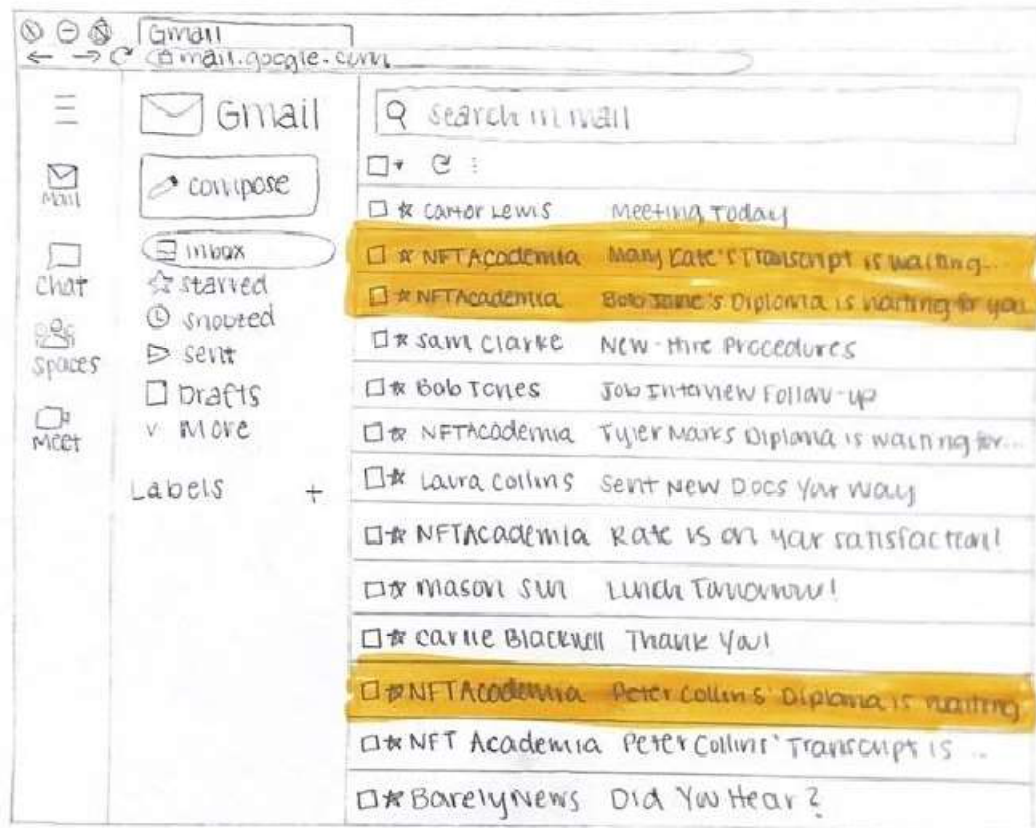 Gmail
mail.google.com
Gmail
search in mail
compose
Mail
Chat
Spaces
Meet
inbox
starred
snoozed
sent
Drafts
more
Labels +
Carter Lewis Meeting Today
NFTAcademia Mary Kate's Transcript is waiting...
NFTAcademia Bob Jane's Diploma is waiting for you
Sam Clarke New-Hire Procedures
Bob Jones Job Interview Follow-up
NFTAcademia Tyler Marks Diploma is waiting for...
Laura Collins Sent New Docs Your Way
NFTAcademia Rate us on your satisfaction!
Mason Sun Lunch Tomorrow!
Carlie Blackwell Thank You!
NFTAcademia Peter Collins' Diploma is waiting
NFT Academia Peter Collins' Transcript is ...
BarelyNews Did You Hear?